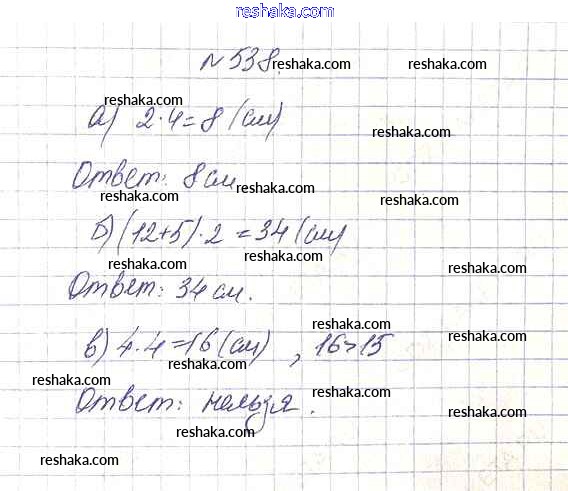 reshaka.com
№538. reshaka.com reshaka.com
reshaka.com
а) 2·4=8 (см)
reshaka.com
Ответ: 8 см
reshaka.com reshaka.com reshaka.com
б) (12+5)·2=34 (см)
reshaka.com reshaka.com reshaka.com
Ответ: 34 см.
reshaka.com reshaka.com
в) 4·4=16 (см) , 16>15
reshaka.com reshaka.com reshaka.com
Ответ: нельзя.
reshaka.com reshaka.com
reshaka.com reshaka.com